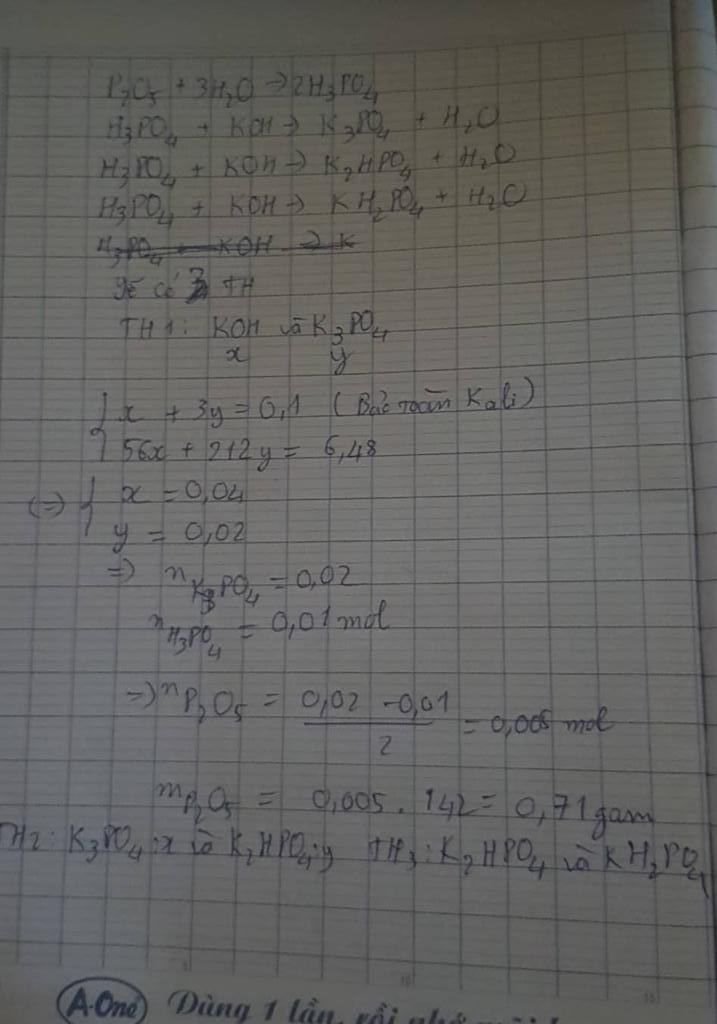 P₂O₅ + 3H₂O → 2H₃PO₄
H₃PO₄ + KOH → K₃PO₄ + H₂O
H₃PO₄ + KOH → K₂HPO₄ + H₂O
H₃PO₄ + KOH → KH₂PO₄ + H₂O
H₃PO₄ + KOH → K
có 3 TH
TH1: KOH và K₃PO₄
x y
x + 3y = 0,1 (Bảo toàn Kali)
56x + 212y = 6,48
(=) x = 0,04
y = 0,02
=) n K₃PO₄ = 0,02
n H₃PO₄ = 0,01 mol
=) n P₂O₅ = 0,02 - 0,01 / 2 = 0,005 mol
m P₂O₅ = 0,005 . 142 = 0,71 gam
TH2: K₃PO₄: x và K₂HPO₄: y TH3: K₂HPO₄ và KH₂PO₄
A-One Dùng 1 lần, rồi nhớ